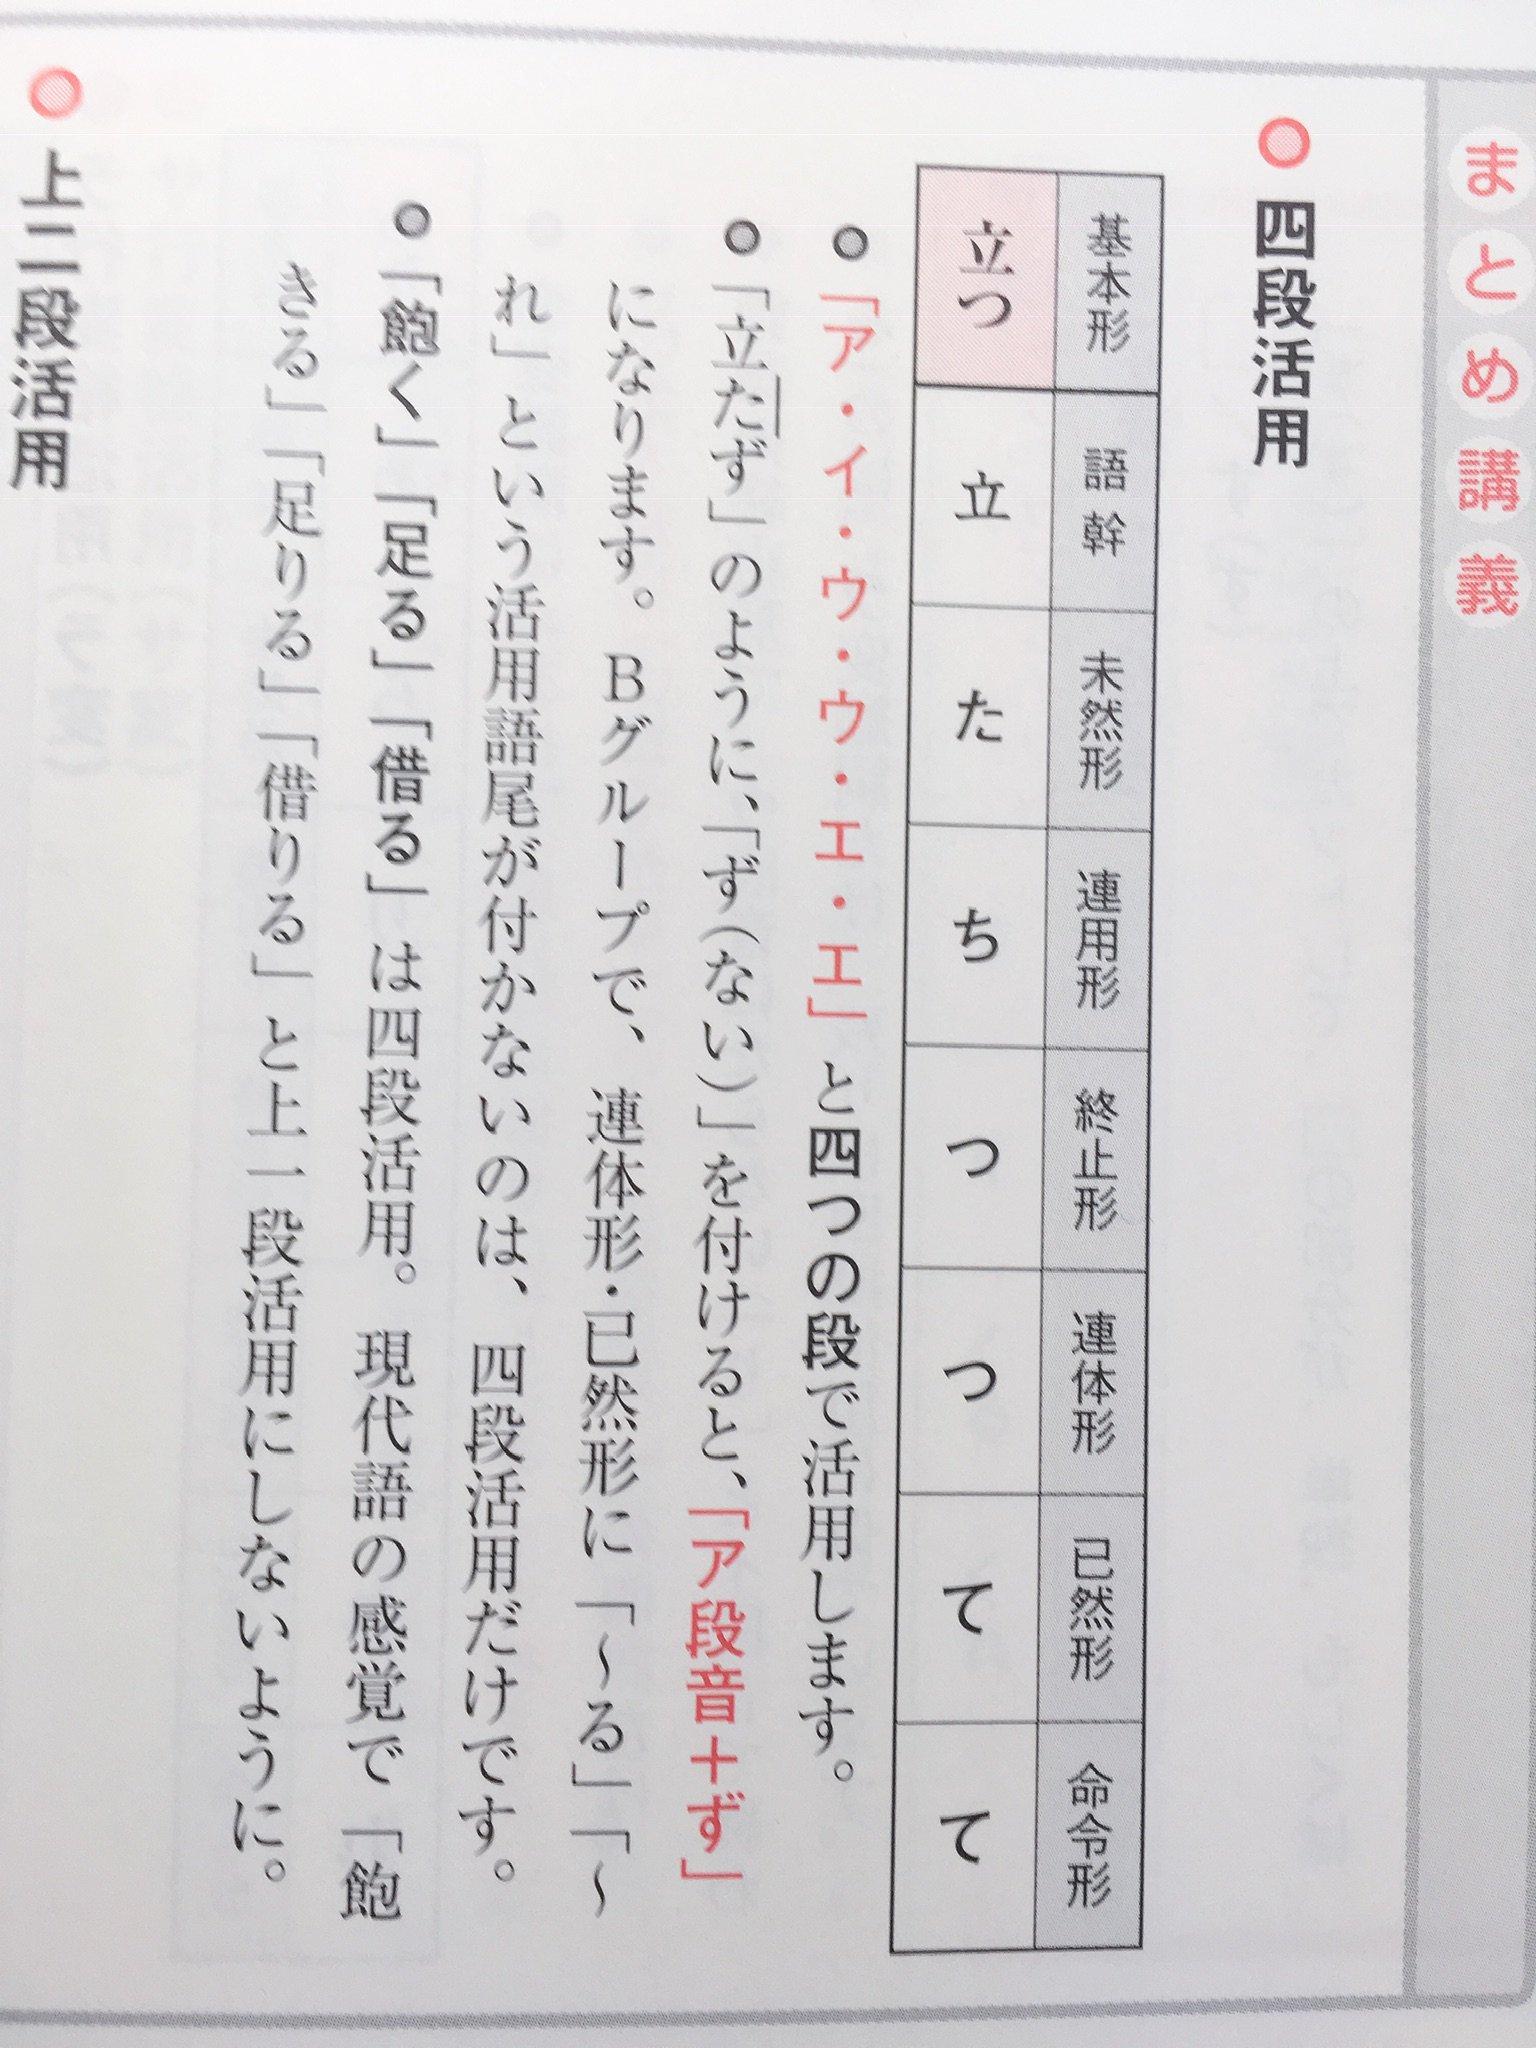 まとめ講義
四段活用
基本形 語幹 未然形 連用形 終止形 連体形 已然形 命令形
立つ 立 た ち つ つ て て
「ア・イ・ウ・ウ・エ・エ」と四つの段で活用します。
「立たず」のように、「ず(ない)」を付けると、「ア段音＋ず」
になります。Bグループで、連体形・已然形に「〜る」「〜
れ」という活用語尾が付かないのは、四段活用だけです。
「飽く」「足る」「借る」は四段活用。現代語の感覚で「飽
きる」「足りる」「借りる」と上一段活用にしないように。
上二段活用